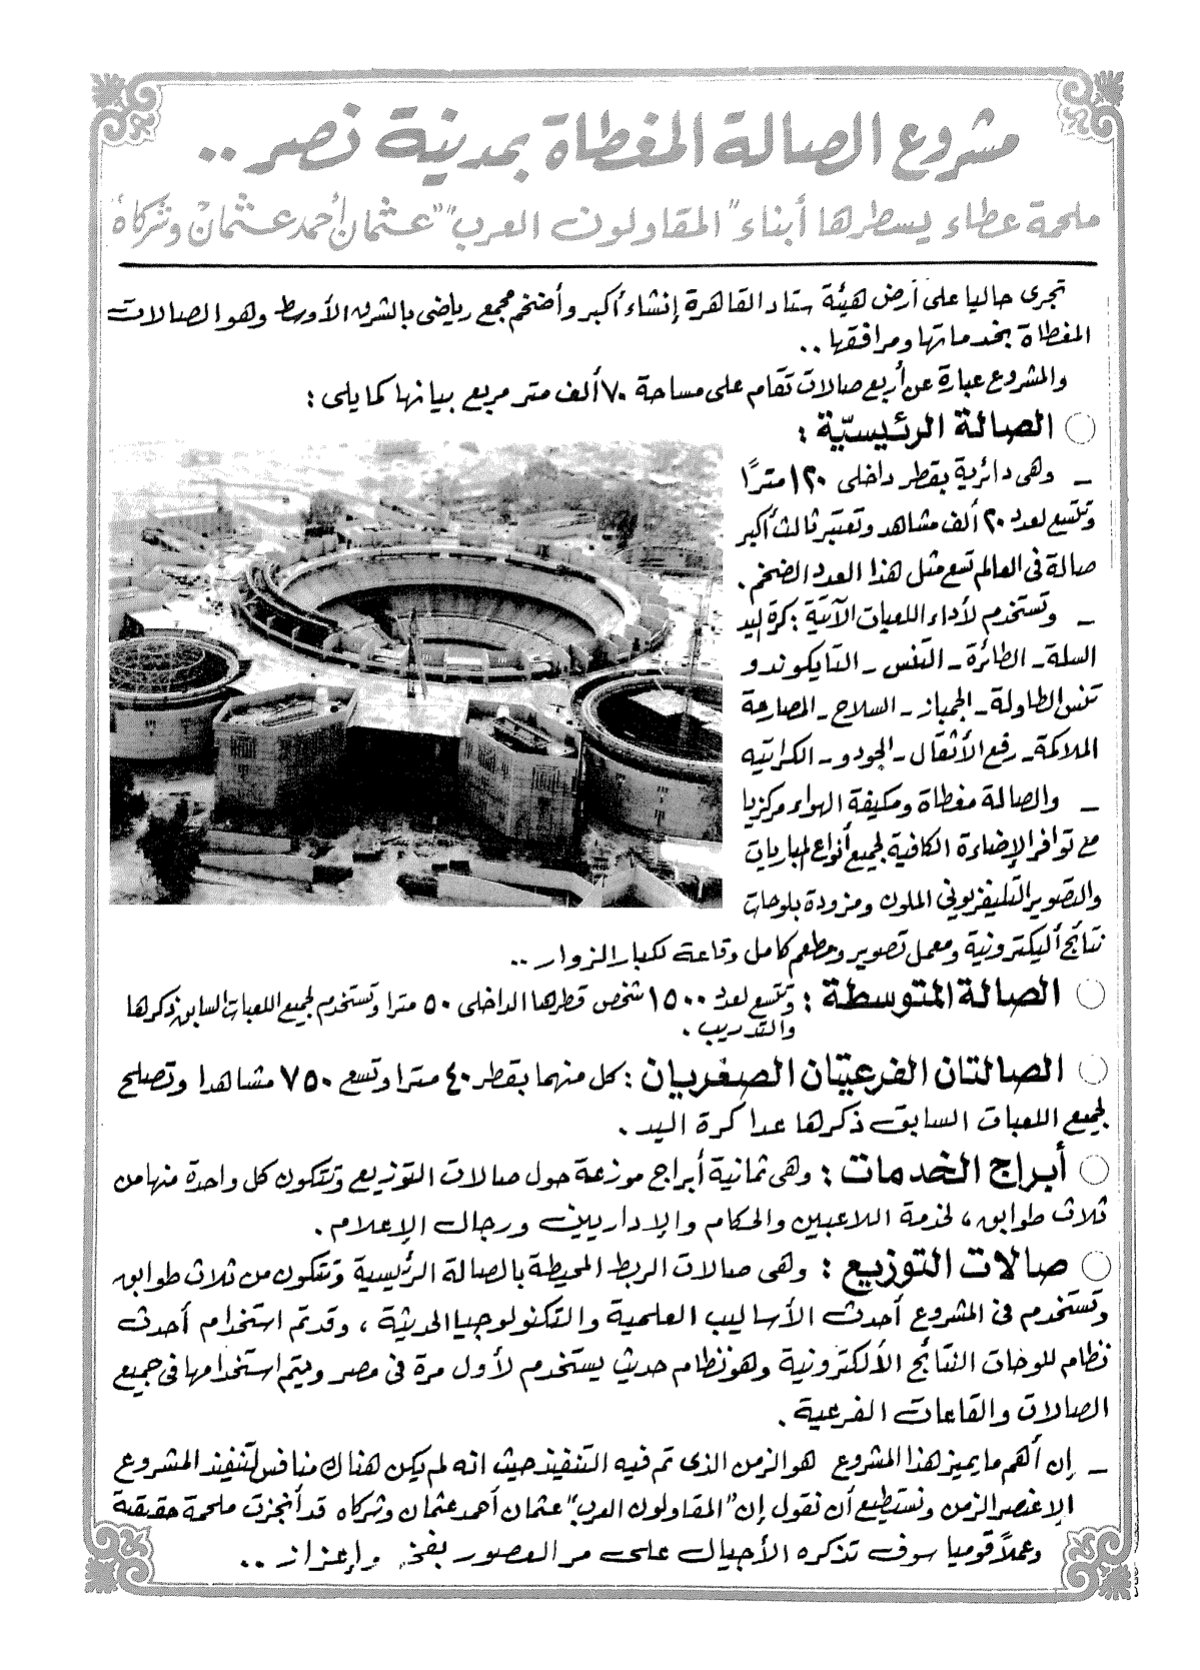 مشروع الصالة المغطاة بمدينة نصر ..
ملحمة عطاء يسطرها أبناء "المقاولون العرب" "عثمان أحمد عثمان وشركاه"
تجرى حاليا على أرض هيئة ستاد القاهرة إنشاء أكبر وأضخم مجمع رياضى بالشرق الأوسط وهو الصالات
المغطاة بخدماتها ومرافقها ..
والمشروع عبارة عن أربع صالات تقام على مساحة ٧٠ ألف متر مربع بيانها كما يلى :
○ الصالة الرئيسيّة :
- وهى دائرية بقطر داخلى ١٢٠ مترًا
وتتسع لعدد ٢٠ ألف مشاهد وتعتبر ثالث أكبر
صالة فى العالم تسع مثل هذا العدد الضخم .
- وتستخدم لأداء اللعبات الآتية : كرة اليد
السلة - الطائرة - التنس - التايكوندو
تنس الطاولة - الجمباز - السلاح - المصارعة
الملاكمة - رفع الأثقال - الجودو - الكراتيه
- والصالة مغطاة ومكيفة الهواء مركزيا
مع توافر الإضاءة الكافية لجميع أنواع المباريات
والتصوير التليفزيونى الملون ومزودة بلوحات
نتائج أليكترونية ومعمل تصوير ومطعم كامل وقاعة لكبار الزوار ..
○ الصالة المتوسطة : وتتسع لعدد ١٥٠٠ شخص قطرها الداخلى ٥٠ مترا وتستخدم لجميع اللعبات السابق ذكرها
والتدريب .
○ الصالتان الفرعيتان الصغريان : كل منهما بقطر ٤٠ مترا وتسع ٧٥٠ مشاهدا وتصلح
لجميع اللعبات السابق ذكرها عدا كرة اليد .
○ أبراج الخدمات : وهى ثمانية أبراج موزعة حول صالات التوزيع وتتكون كل واحدة منها من
ثلاث طوابق ، لخدمة اللاعبين والحكام والإداريين ورجال الإعلام .
○ صالات التوزيع : وهى صالات الربط المحيطة بالصالة الرئيسية وتتكون من ثلاث طوابق
وتستخدم فى المشروع أحدث الأساليب العلمية والتكنولوجيا الحديثة ، وقد تم استخدام أحدث
نظام للوحات النتائج الألكترونية وهو نظام حديث يستخدم لأول مرة فى مصر ويتم استخدامها فى جميع
الصالات والقاعات الفرعية .
- إن أهم ما يميز هذا المشروع هو الزمن الذى تم فيه التنفيذ حيث انه لم يكن هناك منافس لتنفيذ المشروع
إلا عنصر الزمن ونستطيع أن نقول إن "المقاولون العرب" عثمان أحمد عثمان وشركاه قد أنجزت ملحمة حقيقية
وعملاً قوميا سوف تذكره الأجيال على مر العصور بفخر وإعزاز ..